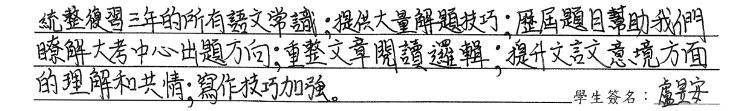 統整復習三年的所有語文常識；提供大量解題技巧；歷屆題目幫助我們
瞭解大考中心出題方向；重整文章閱讀邏輯；提升文言文意境方面
的理解和共情；寫作技巧加強。
學生簽名：盧昱安